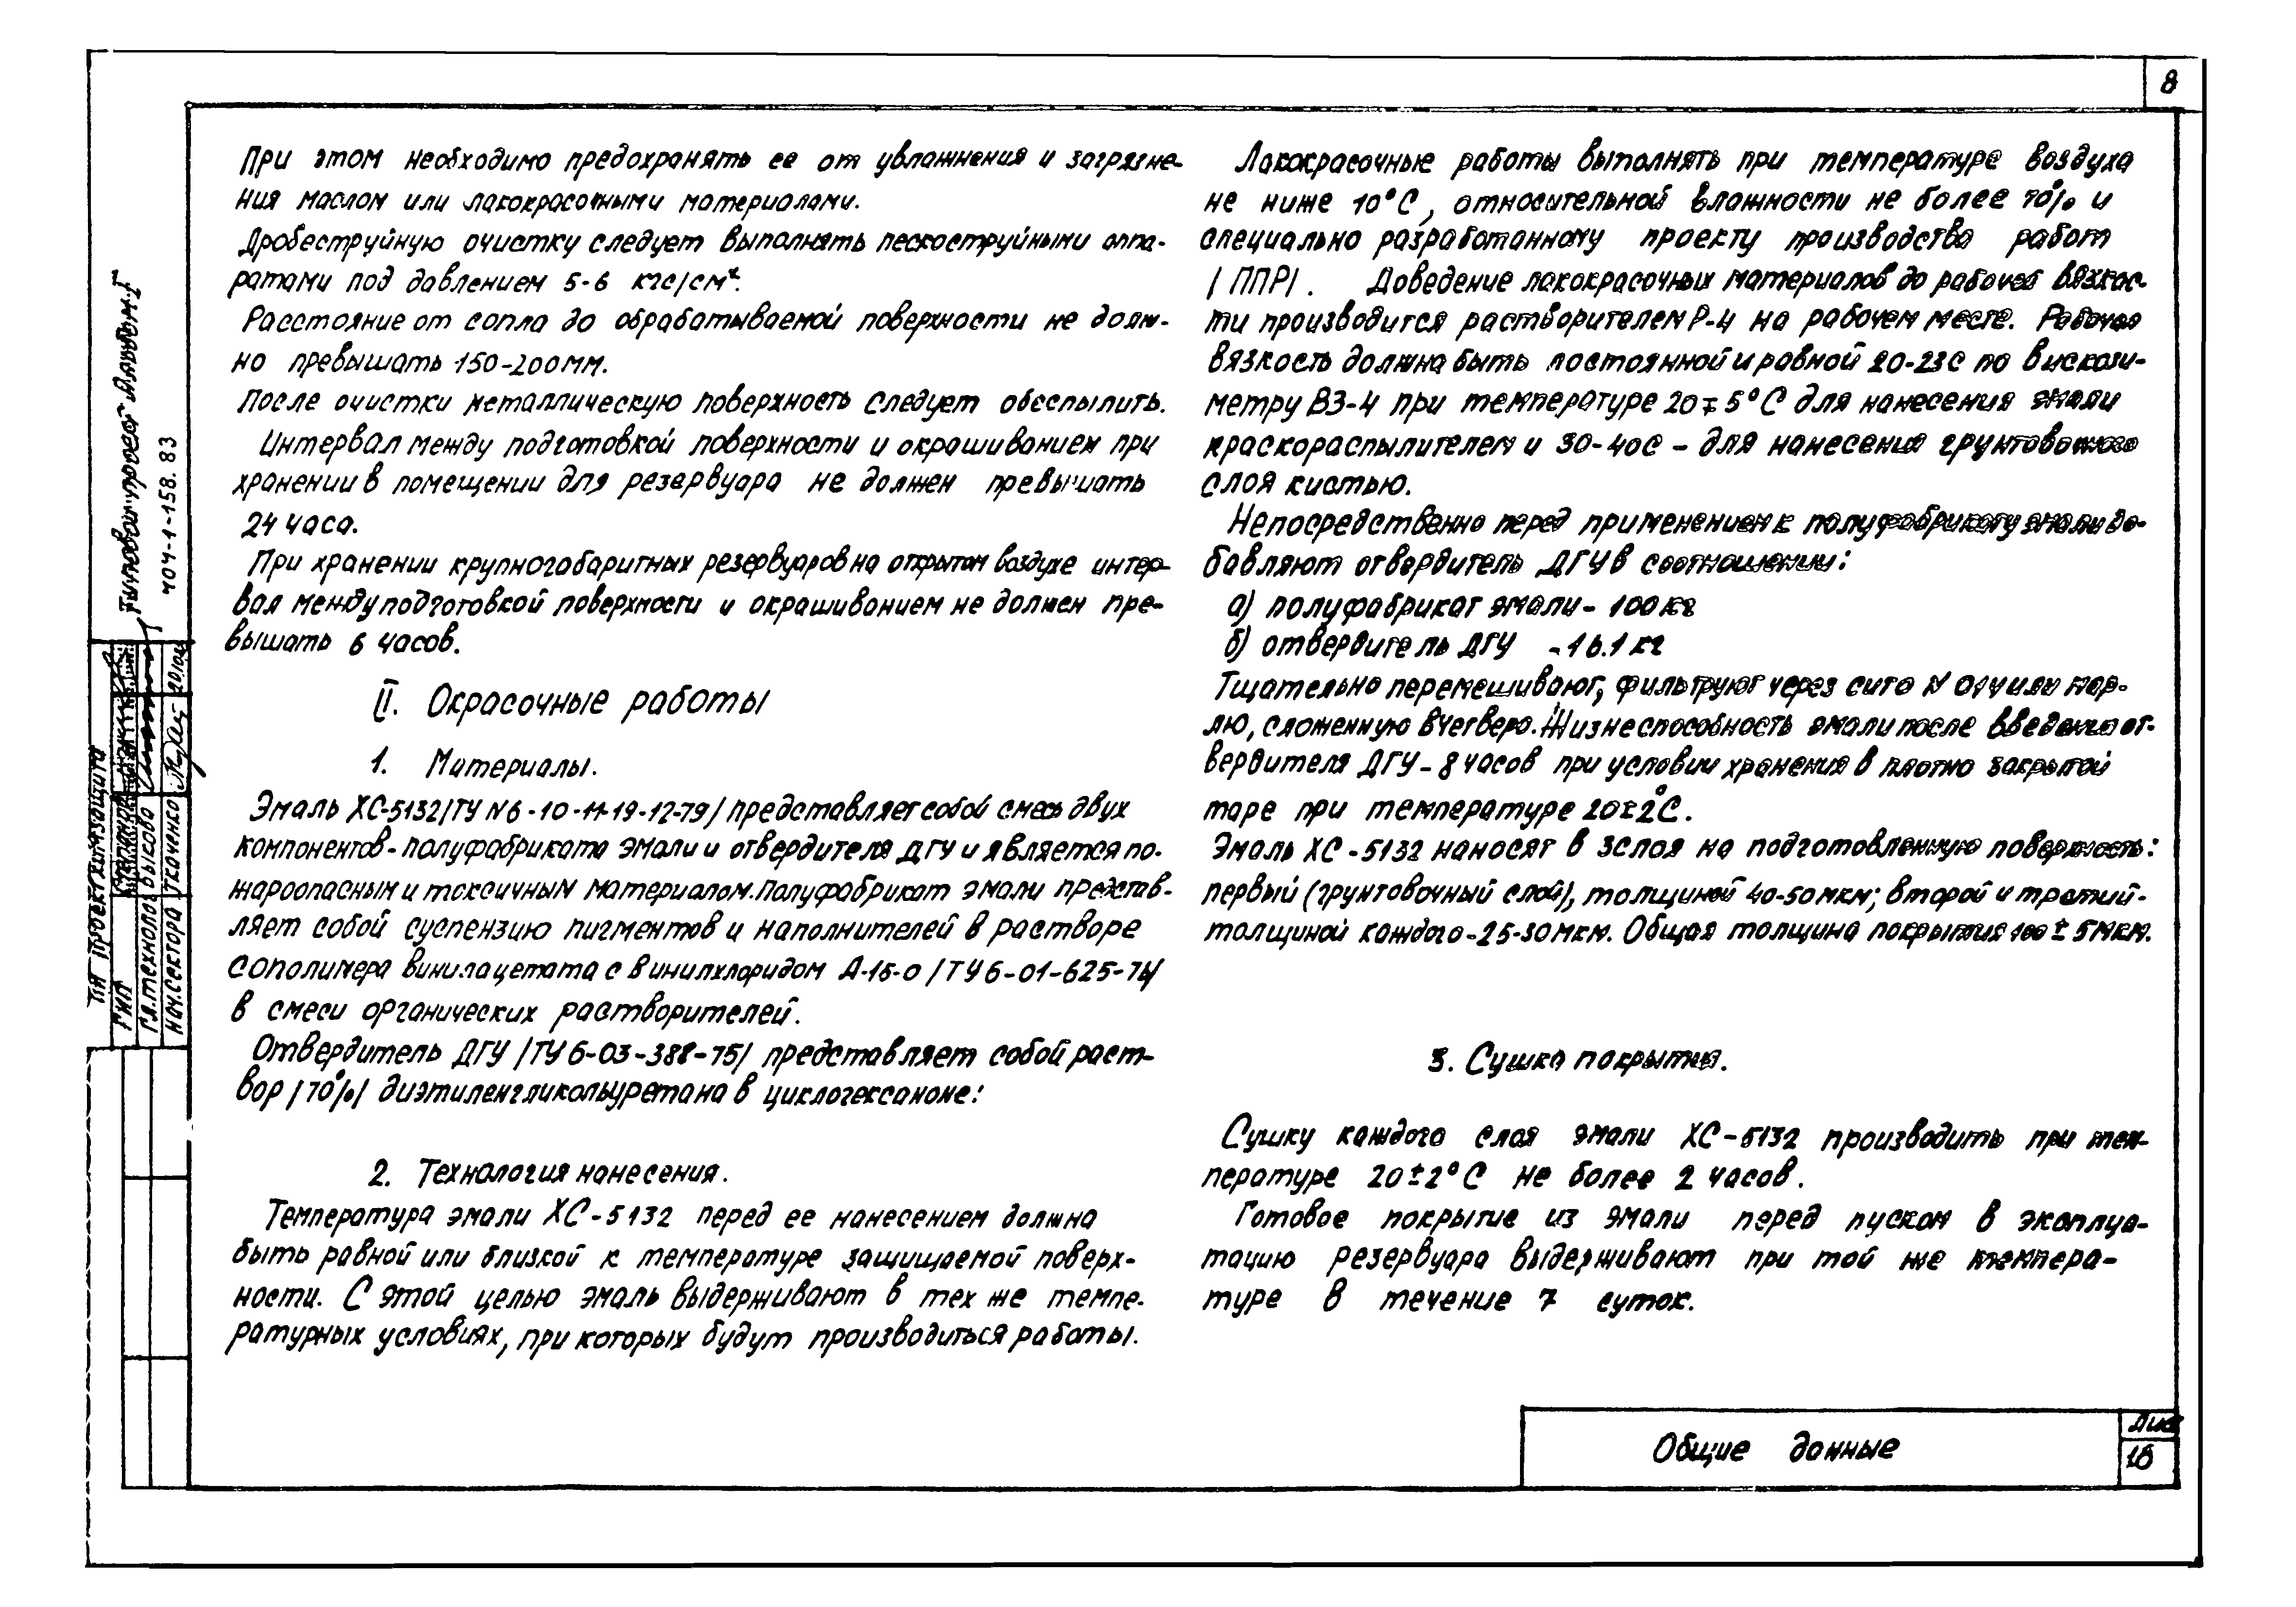 8
При этом необходимо предохранять ее от увлажнения и загрязне-
ния маслом или лакокрасочными материалами.
Дробеструйную очистку следует выполнять пескоструйными аппа-
ратами под давлением 5-6 кгс/см².
Расстояние от сопла до обрабатываемой поверхности не долж-
но превышать 150-200мм.
После очистки металлическую поверхность следует обеспылить.
Интервал между подготовкой поверхности и окрашиванием при
хранении в помещении для резервуара не должен превышать
24 часа.
При хранении крупногабаритных резервуаров на открытом воздухе интер-
вал между подготовкой поверхности и окрашиванием не должен пре-
вышать 6 часов.
II. Окрасочные работы
1. Материалы.
Эмаль ХС-5132/ТУ N6-10-11-19-12-79/ представляет собой смесь двух
компонентов-полуфабриката эмали и отвердителя ДГУ и является по-
жароопасным и токсичным материалом. Полуфабрикат эмали представ-
ляет собой суспензию пигментов и наполнителей в растворе
сополимера винилацетата с винилхлоридом А-15-0 /ТУ6-01-625-74/
в смеси органических растворителей.
Отвердитель ДГУ /ТУ 6-03-388-75/ представляет собой раст-
вор /70%/ диэтиленгликольуретана в циклогексаноне:
2. Технология нанесения.
Температура эмали ХС-5132 перед ее нанесением должна
быть равной или близкой к температуре защищаемой поверх-
ности. С этой целью эмаль выдерживают в тех же темпе-
ратурных условиях, при которых будут производиться работы.
Лакокрасочные работы выполнять при температуре воздуха
не ниже 10°С, относительной влажности не более 70% и
специально разработанному проекту производства работ
/ППР/. Доведение лакокрасочных материалов до рабочей вязкос-
ти производится растворителем Р-4 на рабочем месте. Рабочая
вязкость должна быть постоянной и равной 20-23с по вискози-
метру ВЗ-4 при температуре 20∓5°С для нанесения эмали
краскораспылителем и 30-40с - для нанесения грунтовочного
слоя кистью.
Непосредственно перед применением к полуфабрикату эмали до-
бавляют отвердитель ДГУ в соотношении:
а) полуфабрикат эмали- 100кг
б) отвердитель ДГУ -16.1 кг
Тщательно перемешивают, фильтруют через сито N 014 или мар-
лю, сложенную вчетверо. Жизнеспособность эмали после введения от-
вердителя ДГУ-8 часов при условии хранения в плотно закрытой
таре при температуре 20±2°С.
Эмаль ХС-5132 наносят в 3слоя на подготовленную поверхность:
первый (грунтовочный слой), толщиной 40-50мкм; второй и третий-
толщиной каждого-25-30мкм. Общая толщина покрытия 100±5мкм.
3. Сушка покрытия.
Сушку каждого слоя эмали ХС-5132 производить при тем-
пературе 20±2°С не более 2 часов.
Готовое покрытие из эмали перед пуском в эксплуа-
тацию резервуара выдерживают при той же темпера-
туре в течение 7 суток.
Общие данные
Лист
18
Типовой проект Альбом I
404-1-158.83
ПИ Проектхимзащита
ГИП
Гл.технолог Высова
Нач.сектора Ткаченко